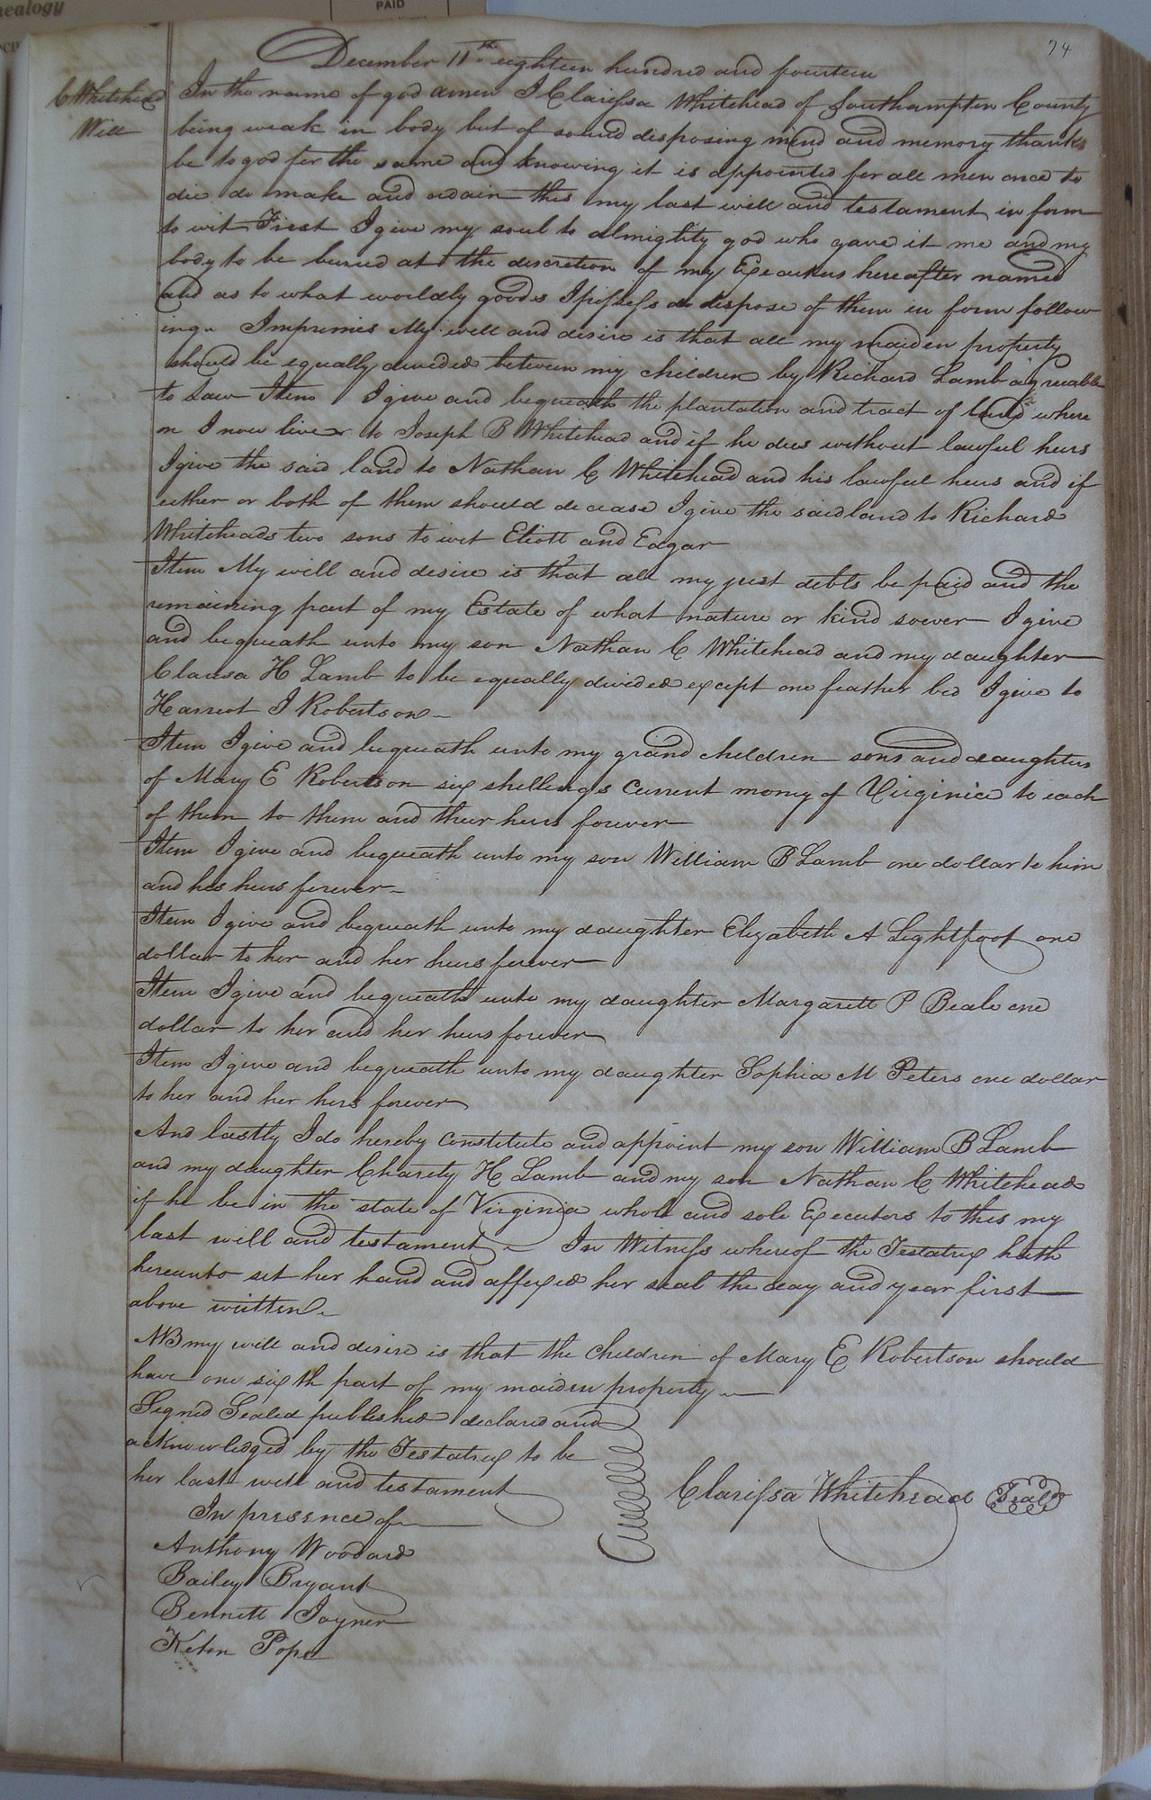 nealogy
PAID
74
December 11th eighteen hundred and fourteen
C Whitehead
Will
In the name of god amen I Clarissa Whitehead of Southampton County
being weak in body but of sound disposing mind and memory thanks
be to god for the same and knowing it is appointed for all men once to
die do make and ordain this my last will and testament in form
to wit First I give my soul to almighty god who gave it me and my
body to be buried at the discretion of my Executors hereafter named
and as to what worldly goods I possess do dispose of them in form follow
ing. Imprimis My will and desire is that all my maiden property
should be equally divided between my children by Richard Lamb agreeable
to Law Item I give and bequeath the plantation and tract of land where
on I now live to Joseph B Whitehead and if he dies without lawful heirs
I give the said land to Nathan C Whitehead and his lawful heirs and if
either or both of them should decease I give the said land to Richard
Whiteheads two sons to wit Eliott and Edgar
Item My will and desire is that all my just debts be paid and the
remaining part of my Estate of what nature or kind soever I give
and bequeath unto my son Nathan C Whitehead and my daughter
Clarisa H Lamb to be equally divided except one feather bed I give to
Harreot J Robertson
Item I give and bequeath unto my grand children sons and daughters
of Mary E Robertson six shellings current money of Virginia to each
of them to them and their heirs forever
Item I give and bequeath unto my son William B Lamb one dollar to him
and his heirs forever
Item I give and bequeath unto my daughter Elizabeth A Lightfoot one
dollar to her and her heirs forever
Item I give and bequeath unto my daughter Margarett P Beale one
dollar to her and her heirs forever
Item I give and bequeath unto my daughter Sophia M Peters one dollar
to her and her hers forever
And lastly I do hereby constitute and appoint my son William B Lamb
and my daughter Charity H Lamb and my son Nathan C Whitehead
if he be in the state of Virginia whole and sole Executors to this my
last will and testament In Witness whereof the Testatrix hath
hereunto set her hand and affixed her seal the day and year first
above written
NB my will and desire is that the children of Mary E Robertson should
have one sixth part of my maiden property
Signed Sealed published declared and
acknowledged by the Testatrix to be
her last will and testament
In presence of
Clarissa Whitehead Seal
Anthony Woodard
Bailey Bryant
Bennett Joyner
Keton Pope